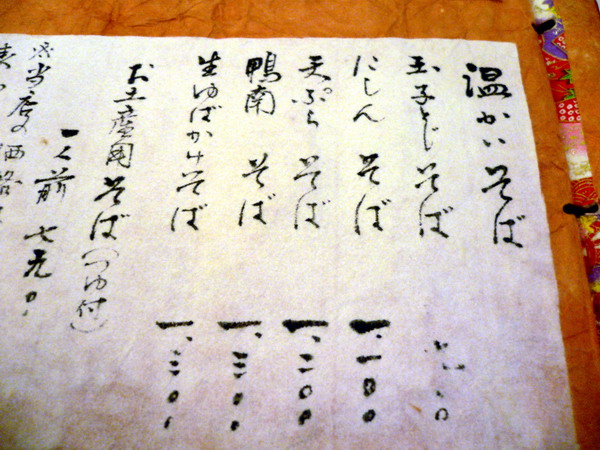 温かいそば
玉子とじ そば
にしん そば 一、一〇〇
天ぷら そば 一、二〇〇
鴨南 そば 一、三〇〇
生ゆばかけそば 一、三〇〇
お土産用そば(つゆ付)
一人前
当店の